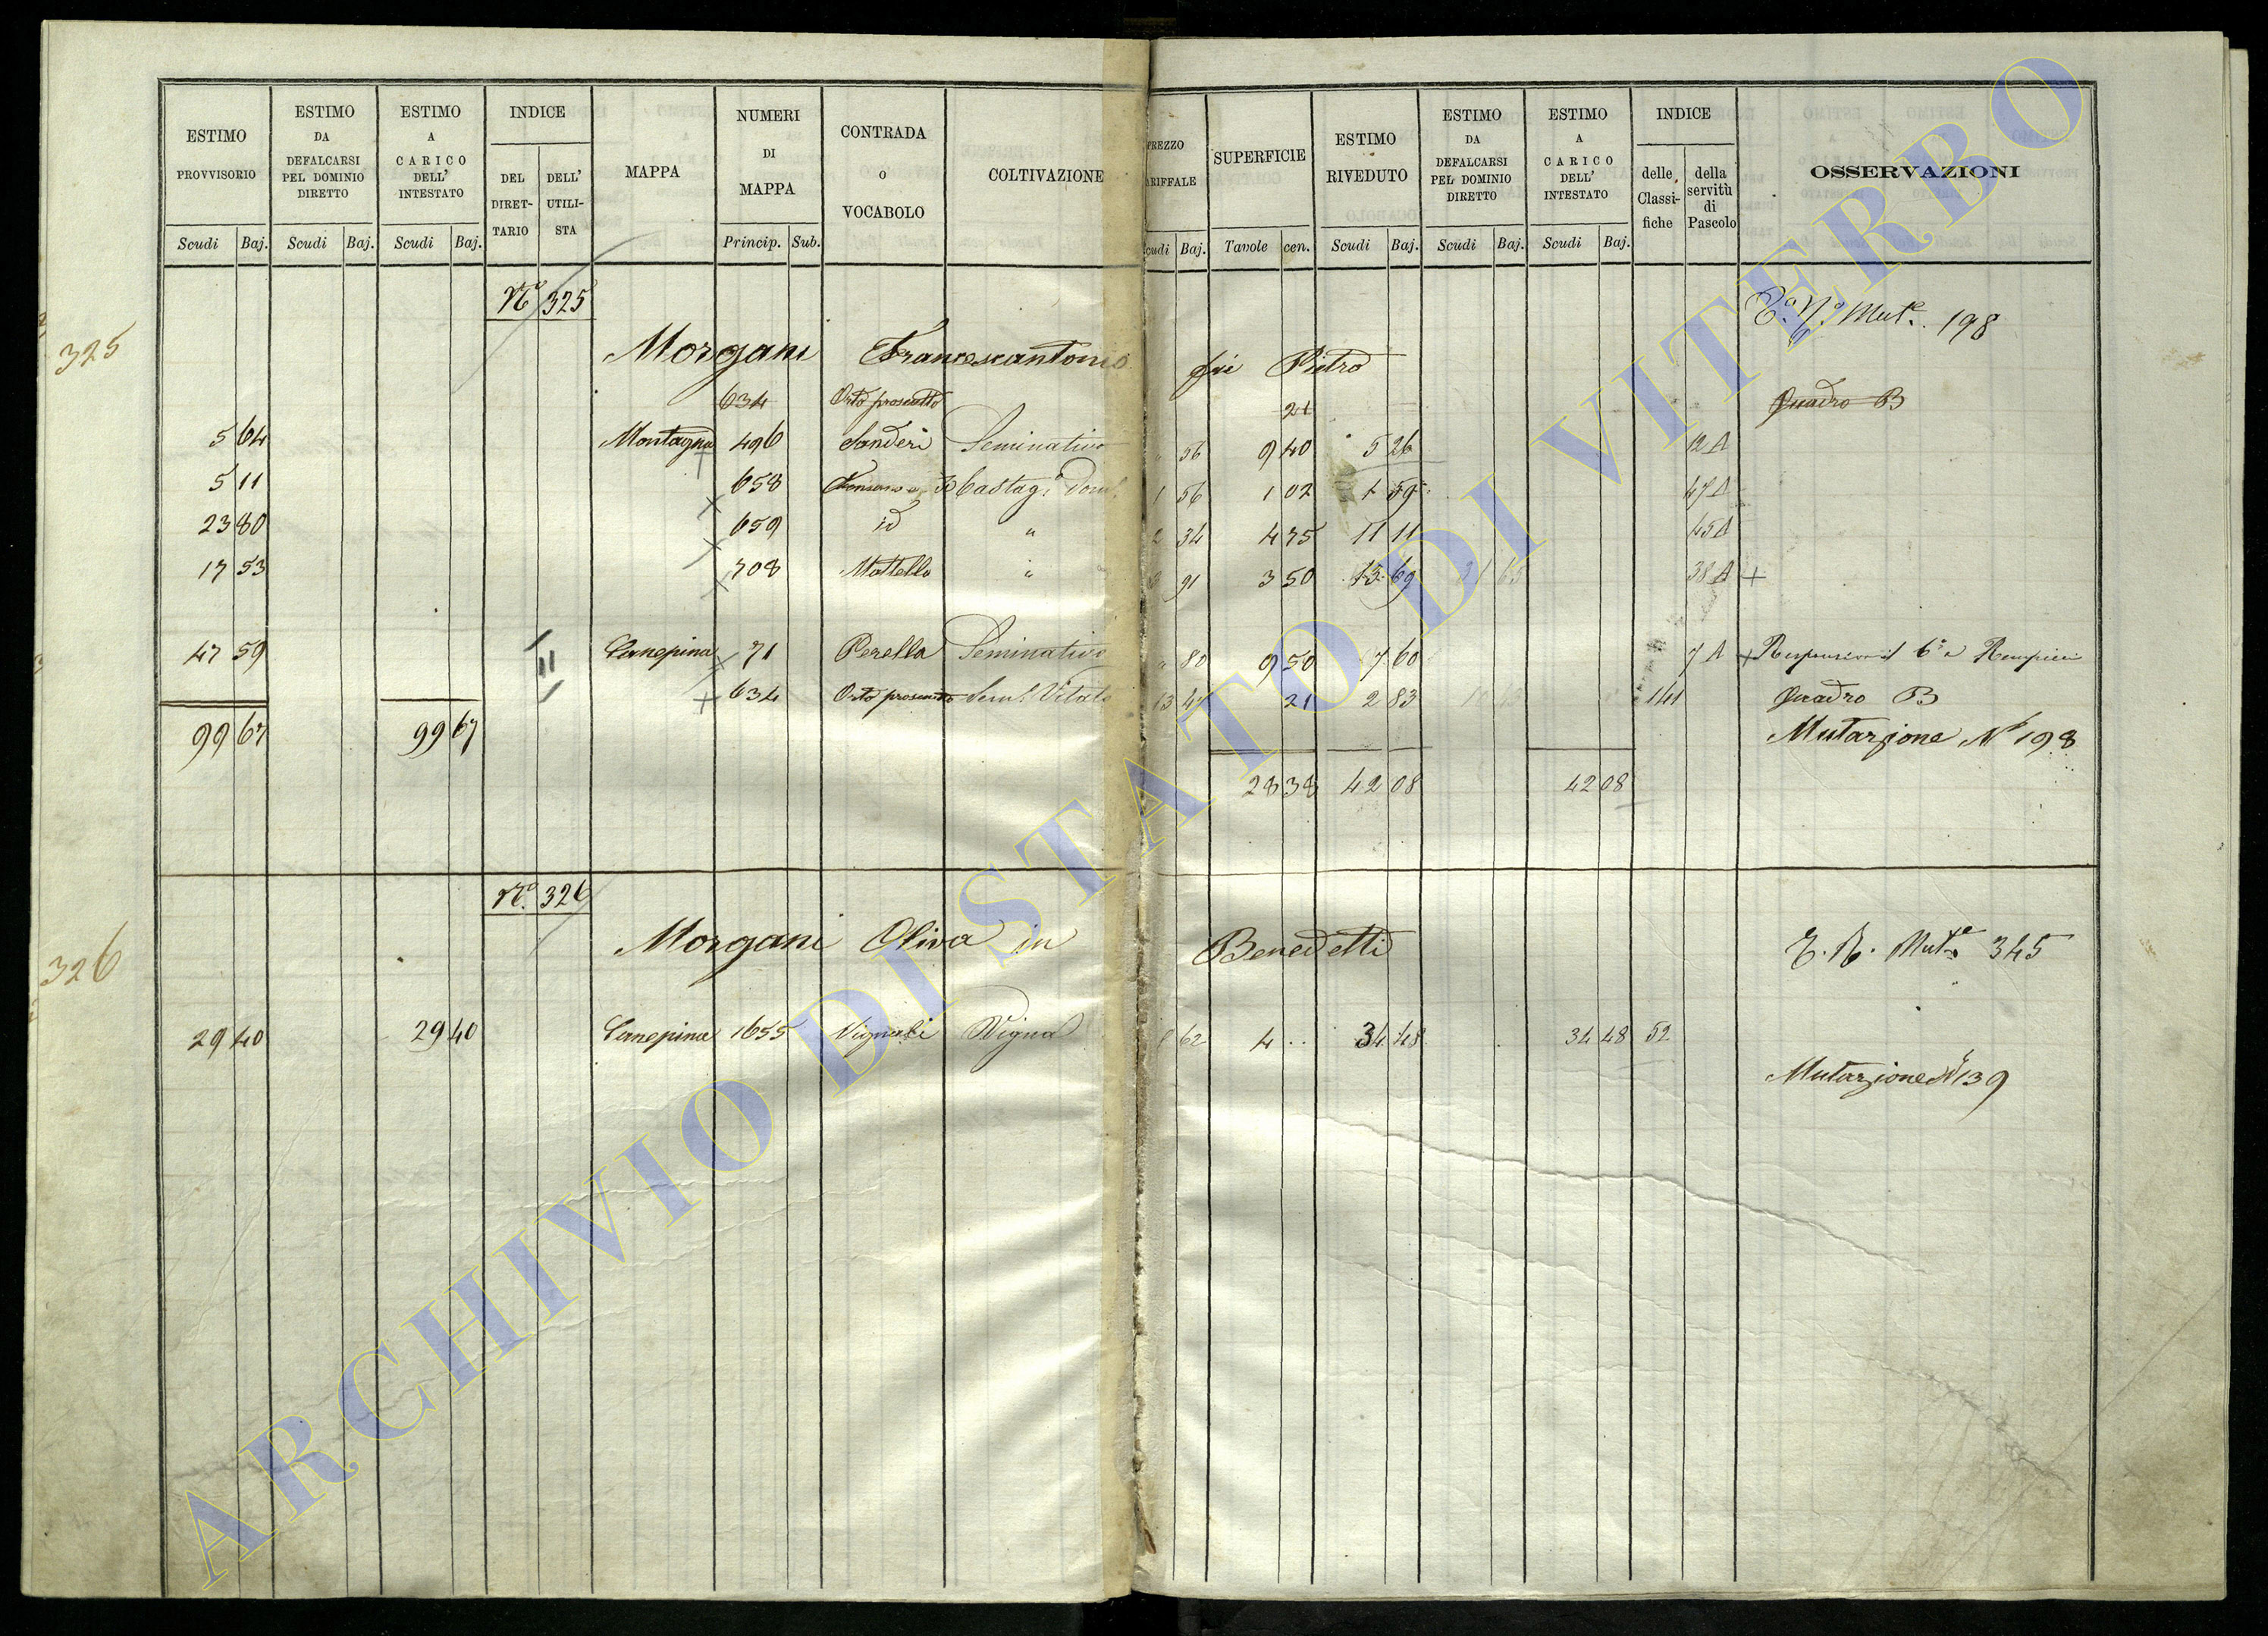 ESTIMO PROVVISORIO Scudi Baj.
ESTIMO DA DEFALCARSI PEL DOMINIO DIRETTO Scudi Baj.
ESTIMO A CARICO DELL' INTESTATO Scudi Baj.
INDICE DEL DIRET-TARIO DELL' UTILI-STA
MAPPA
NUMERI DI MAPPA Princip. Sub.
CONTRADA O VOCABOLO
COLTIVAZIONE
PREZZO TARIFFALE Scudi Baj.
SUPERFICIE Tavole cen.
ESTIMO RIVEDUTO Scudi Baj.
ESTIMO DA DEFALCARSI PEL DOMINIO DIRETTO Scudi Baj.
ESTIMO A CARICO DELL' INTESTATO Scudi Baj.
INDICE delle Classi-fiche della servitù di Pascolo
OSSERVAZIONI
No 325
Mut.e 198
325
Morgani Francescantonio fu Pietro
634 Orto 21 Quadro B
5 64 Montagna 496 Seminativo 56 9 40 5 26 12 A
5 11 658 Castag. 1 56 1 02 1 59 47 A
23 80 659 id " 2 34 4 75 11 11 45 A
17 53 708 Mattello " 91 3 50 13 69 38 A +
47 59 Canepina 71 Perella Seminativo " 80 9 50 7 60 7 A
634 Orto Sem. Vitato 13 47 21 2 83 141 Quadro B
99 67 99 67 Mutazione No 198
28 38 42 08 42 08
No. 326
326
Morgani Oliva in Benedetti
Mut.e 345
29 40 29 40 Canepina 1655 Vignali Vigna 8 62 4 .. 34 48 34 48 52
Mutazione No 139
ARCHIVIO DI STATO DI VITERBO